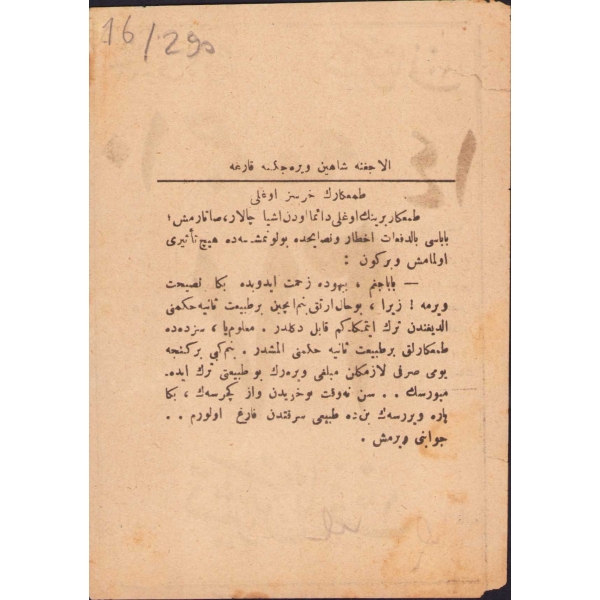 16/290
الاجغنه شاهين ويره‌جكنه قارغه
طمعكارك خرسز اوغلى
طمعكار برينك اوغلى دائما اودن اشيا چالار، صاتارمش؛
باباسى بالدفعات اخطار ونصايحده بولونمشسه‌ده هيچ تأثيرى
اولمامش وبركون :
— باباجغم ، بيهوده زحمت ايدوبده بكا نصيحت
ويرمه ! زيرا ، بوحال ارتق بنم‌ايچين برطبيعت ثانيه حكمنى
الديغندن ترك ايتمكلكم قابل دكلدر . معلوم‌يا ، سزده‌ده
طمعكارلق برطبيعت ثانيه حكمنى المشدر . بنم كبى بركنجه
يومى صرفى لازمكلن مبلغى ويره‌رك بو طبيعتى ترك ايده‌
ميورسك . . سن نه‌وقت بوخويدن واز كچرسه‌ك ، بكا
پاره ويررسه‌ك بن‌ده طبيعى سرقتدن فارغ اولورم . .
جوابنى ويرمش .